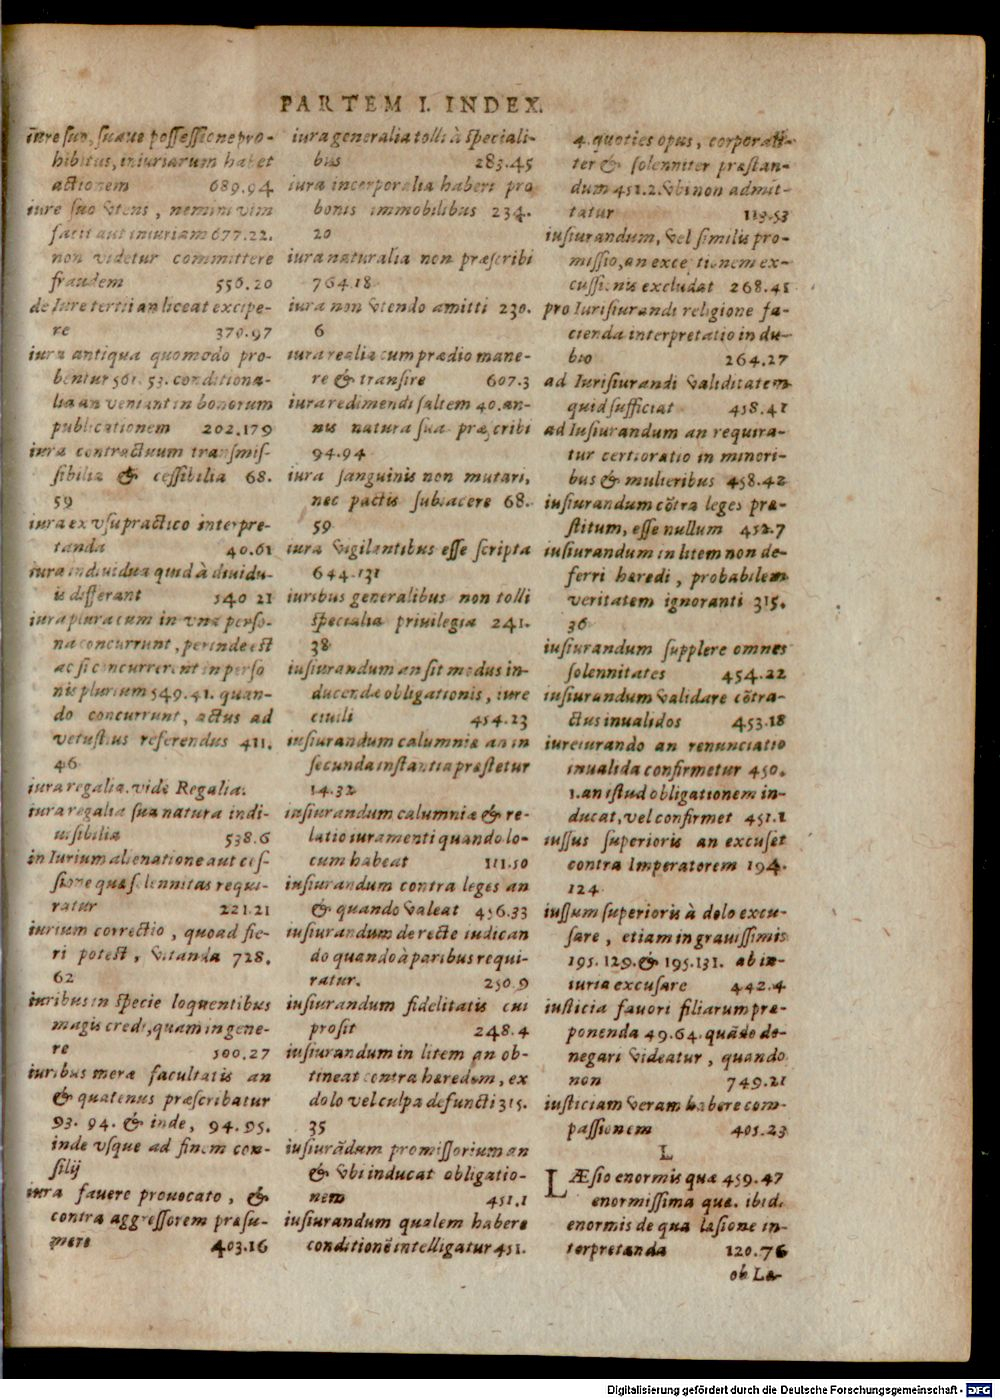 PARTEM I. INDEX.
iure suo, suaue possessione pro-
hibitus, iniuriarum habet
actionem 689.94
iure suo vtens, nemini vim
facit aut iniuriam 677.22.
non videtur committere
fraudem 556.20
de Iure tertii an liceat excipe-
re 370.97
iura antiqua quomodo pro-
bentur 561. 53. conditiona-
lia an veniant in bonorum
publicationem 202.179
iura contractuum transmis-
sibilia & cessibilia 68.
59
iura ex vsu practico interpre-
tanda 40.61
iura indiuidua quid à diuidu-
is differant 540 21
iura plura cum in vna perso-
na concurrunt, perinde est
ac si concurrerent in perso
nis plurium 549.41. quan-
do concurrunt, actus ad
vetustius referendus 411.
46
iura regalia. vide Regalia.
iura regalia sua natura indi-
uisibilia 538.6
in Iurium alienatione aut ces-
sione quæ solennitas requi-
ratur 221.21
iurium correctio, quoad fie-
ri potest, vitanda 728.
62
iuribus in specie loquentibus
magis credi, quam in gene-
re 500.27
iuribus meræ facultatis an
& quatenus præscribatur
93. 94. & inde, 94.95.
inde vsque ad finem con-
silij
iura fauere prouocato, &
contra aggressorem præsu-
mere 403.16
iura generalia tolli à speciali-
bus 283.45
iura incorporalia haberi pro
bonis immobilibus 234.
20
iura naturalia non præscribi
764.18
iura non vtendo amitti 230.
6
iura realia cum prædio mane-
re & transire 607.3
iura redimendi saltem 40. an-
nis natura sua præscribi
94.94
iura sanguinis non mutari,
nec pactis subiacere 68.
59
iura vigilantibus esse scripta
644.131
iuribus generalibus non tolli
specialia priuilegia 241.
38
iusiurandum an sit modus in-
ducendæ obligationis, iure
ciuili 454.23
iusiurandum calumniæ an in
secunda instantia præstetur
14.32
iusiurandum calumniæ & re-
latio iuramenti quando lo-
cum habeat 111.50
iusiurandum contra leges an
& quando valeat 456.33
iusiurandum de recte iudican
do quando à paribus requi-
ratur. 250.9
iusiurandum fidelitatis cui
prosit 248.4
iusiurandum in litem an ob-
tineat contra hæredem, ex
dolo vel culpa defuncti 315.
35
iusiurãdum promissorium an
& vbi inducat obligatio-
nem 451.1
iusiurandum qualem habere
conditionẽ intelligatur 451.
4. quoties opus, corporali-
ter & solenniter præstan-
dum 451.2. vbi non admit-
tatur 113.53
iusiurandum, vel similis pro-
missio, an exceptionem ex-
cussionis excludat 268.45
pro Iurisiurandi religione fa-
cienda interpretatio in du-
bio 264.27
ad Iurisiurandi validitatem
quid sufficiat 458.41
ad Iusiurandum an requira-
tur certioratio in minori-
bus & mulieribus 458.42
iusiurandum cõtra leges præ-
stitum, esse nullum 452.7
iusiurandum in litem non de-
ferri hæredi, probabilem
veritatem ignoranti 315.
36
iusiurandum supplere omnes
solennitates 454.22
iusiurandum validare cõtra-
ctus inualidos 453.18
iureiurando an renunciatio
inualida confirmetur 450.
1. an istud obligationem in-
ducat, vel confirmet 451.1
iussus superioris an excuset
contra Imperatorem 194.
124
iussum superioris à dolo excu-
sare, etiam in grauissimis
195. 129. & 195.131. ab in-
iuria excusare 442.4
iusticia fauori filiarum præ-
ponenda 49.64. quãdo de-
negari videatur, quando
non 749.21
iusticiam veram habere com-
passionem 405.23
L
LÆsio enormis quæ 459.47
enormissima quæ. ibid.
enormis de qua læsione in-
terpretanda 120.76
ob Læ-
Digitalisierung gefördert durch die Deutsche Forschungsgemeinschaft - DFG